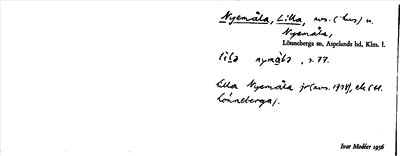 Nyemåla, Lilla, avs. (hus) u.
Nyemåla,
Lönneberga sn, Aspelands hd, Klm. l.
lila nymåla, s. 77.
Lilla Nyemåla
Lönneberga).
Ivar Modéer 1936